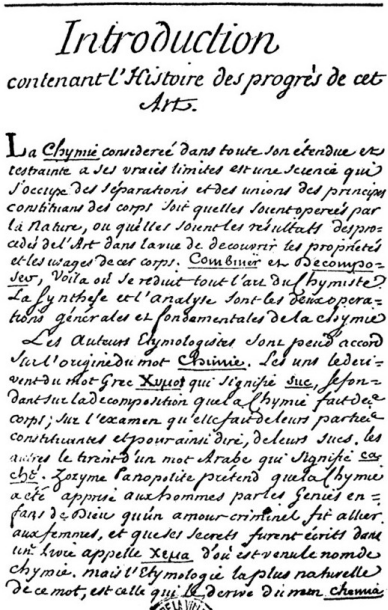 Introduction
contenant l'Histoire des progrès de cet
Art.
La Chymie considereé dans toute son étendue et
restrainte a ses vraies limites est une science qui
s'occupe des séparations et des unions des principes
constituans des corps soit quelles soient opereés par
la Nature, ou quelles soient les resultats des pro-
cedés de l'Art dans la vue de decouvrir les proprietés
et les usages de ces corps. Combiner et Decompo-
ser, Voila où se reduit tout l'art du Chymiste.
La Synthese et l'analyse sont les deux opera-
tions générales et fondamentales de la chymie
Les Auteurs Etymologistes sont peu d'accord
sur l'origine du mot Chimie. Les uns le deri-
vent du mot Grec Χυμος qui signifie suc, se fon-
dant sur la decomposition que la Chymie fait des
corps; sur l'examen qu'elle fait de leurs parties
constituantes et pour ainsi dire, de leurs sucs. les
autres le tirent d'un mot Arabe qui signifie ca-
ché. Zozyme Panopolite prétend que la Chymie
a été apprise aux hommes par les Genies en-
fans de Dieu qu'un amour criminel fit allier
aux femmes, et que ses secrets furent écrits dans
un Livre appellé Χεμα d'où est venu le nom de
Chymie. mais l'Etymologie la plus naturelle
de ce mot, est celle qui le derive du mem chemia